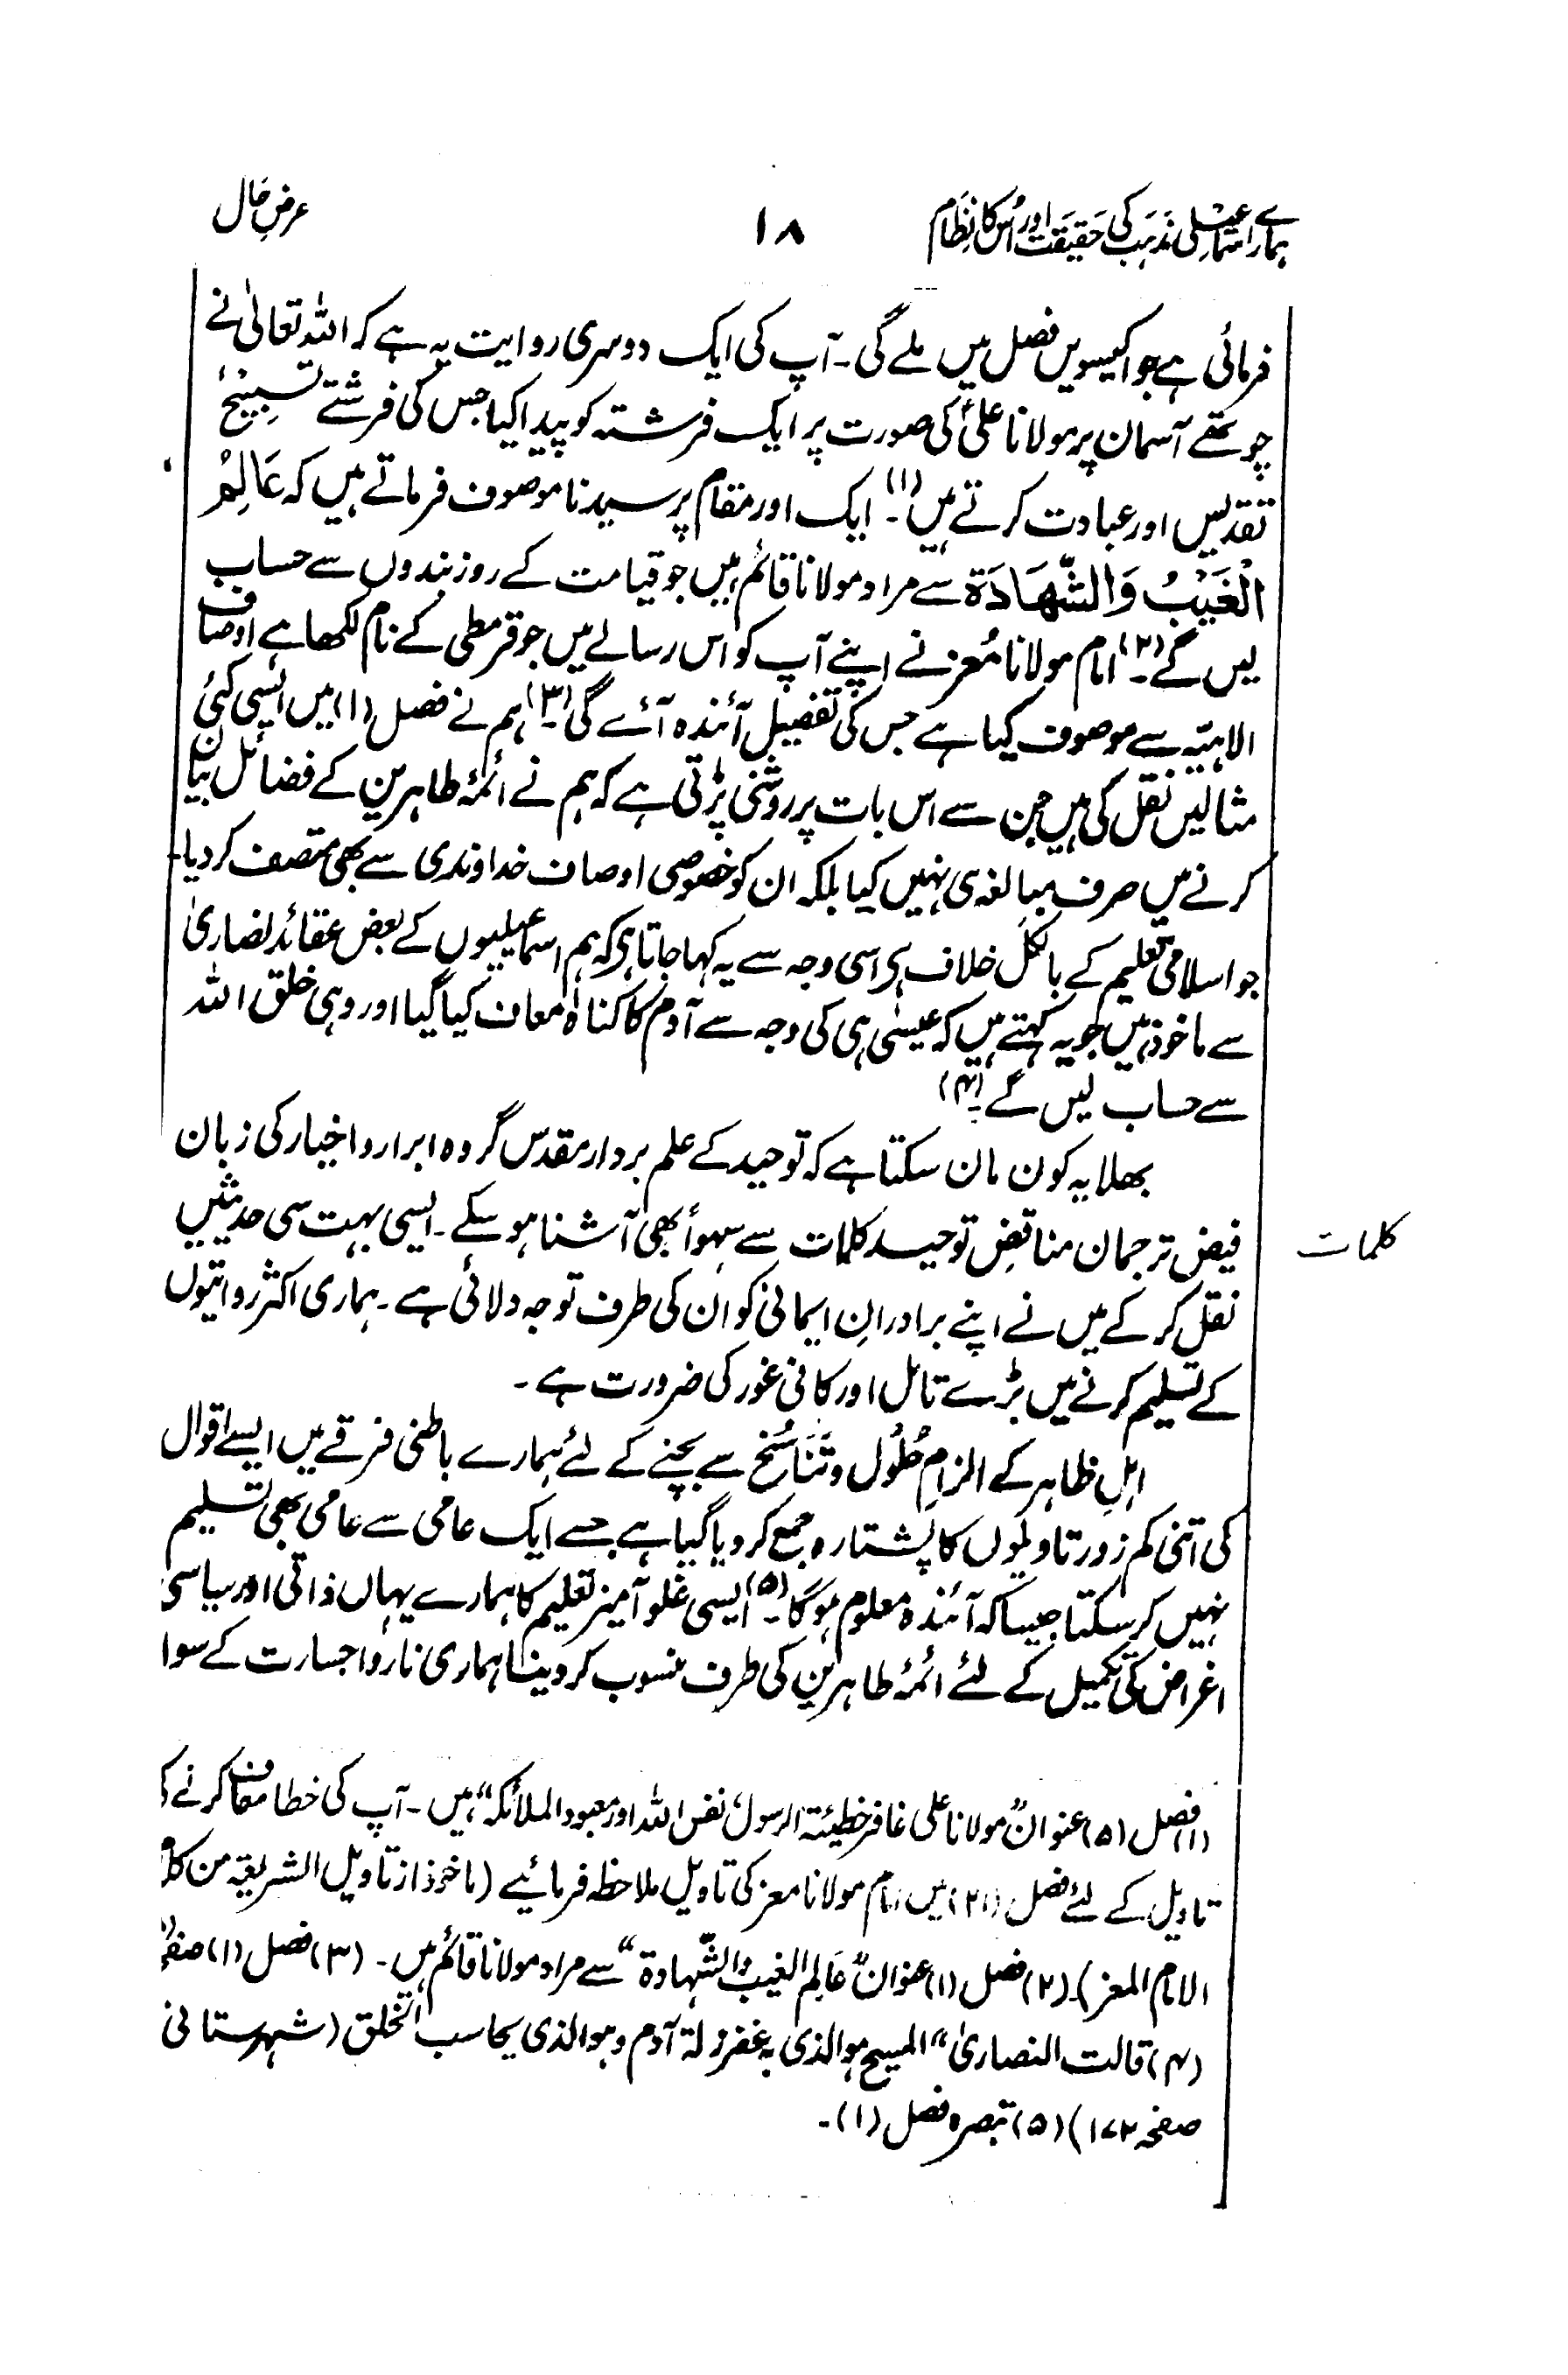 ہمارے اسمٰعیلی مذہب کی حقیقت اور اُس کا نظام ۱۸ عرضِ حال
فرمائی ہے جو اکیسویں فصل میں ملے گی۔ آپ کی ایک دوسری روایت یہ ہے کہ اللہ تعالیٰ نے
چوتھے آسمان پر مولانا علیؑ کی صورت پر ایک فرشتہ کو پیدا کیا جس کی فرشتے تسبیح
تقدیس اور عبادت کرتے ہیں (۱)۔ ایک اور مقام پر سیدنا موصوف فرماتے ہیں کہ عَالِمُ
الْغَیْبُ وَالشَّھَادَۃ سے مراد مولانا قائم ہیں جو قیامت کے روز بندوں سے حساب
لیں گے (۲)۔ امام مولانا مُعز نے اپنے آپ کو اس رسالے میں جو قرمطی کے نام لکھا ہے اوصاف
الاہیّہ سے موصوف کیا ہے جس کی تفصیل آئندہ آئے گی (۳)۔ ہم نے فصل (۱) میں ایسی کئی
مثالیں نقل کی ہیں جن سے اس بات پر روشنی پڑتی ہے کہ ہم نے ائمۂ طاہرین کے فضائل بیان
کرنے میں صرف مبالغہ ہی نہیں کیا بلکہ ان کو خصوصی اوصاف خداوندی سے بھی متصف کر دیا۔
جو اسلامی تعلیم کے بالکل خلاف ہی اسی وجہ سے یہ کہا جاتا ہی کہ ہم اسماعیلیوں کے بعض عقائد نصاریٰ
سے ماخوذ ہیں جو یہ کہتے ہیں کہ عیسٰی ہی کی وجہ سے آدم کا گناہ معاف کیا گیا اور وہی خلق اللہ
سے حساب لیں گے (۴)
بھلا یہ کون مان سکتا ہے کہ توحید کے علم بردار مقدس گروہ ابرار و اخیار کی زبان
فیض ترجمان مناقضِ توحید کلمات سے سہواً بھی آشنا ہو سکے۔ ایسی بہت سی حدیثیں
کلمات
نقل کر کے میں نے اپنے برادرانِ ایمانی کو ان کی طرف توجہ دلائی ہے۔ ہماری اکثر روایتوں
کے تسلیم کرنے میں بڑے تامل اور کافی غور کی ضرورت ہے۔
اہلِ ظاہر کے الزامِ حُلُول و تَنَاسُخ سے بچنے کے لئے ہمارے باطنی فرقے میں ایسے اقوال
کی اتنی کم زور تاویلوں کا پشتارہ جمع کر دیا گیا ہے جسے ایک عامی سے عامی بھی تسلیم
نہیں کر سکتا جیسا کہ آئندہ معلوم ہو گا (۵)۔ ایسی غلو آمیز تعلیم کا ہمارے یہاں ذاتی اور سیاسی
اغراض کی تکمیل کے لئے ائمۂ طاہرین کی طرف منسوب کر دینا ہماری ناروا جسارت کے سوا
(۱) فصل (۵) عنوان ”مولانا علی غافر خطیئۃ الرسول نفس اللہ اور معبود الملائکہ“ ہیں۔ آپ کی خطا معاف کرنے کی
تاویل کے لئے فصل (۲۱) میں امام مولانا معز کی تاویل ملاحظہ فرمائیے (ماخوذ از تاویل الشریعۃ من کلام
الامام المعز)۔ (۲) فصل (۱) عنوان ”عَالِم الغیب والشّہادۃ“ سے مراد مولانا قائم ہیں۔ (۳) فصل (۱)
(۴) قالت النصاریٰ ”المسیح ہو الذی بہ غفر زلۃ آدم و ہو الذی یحاسب الخلق (شہرستانی
صفحہ ۱۷۲) (۵) تبصرہ فصل (۱)۔